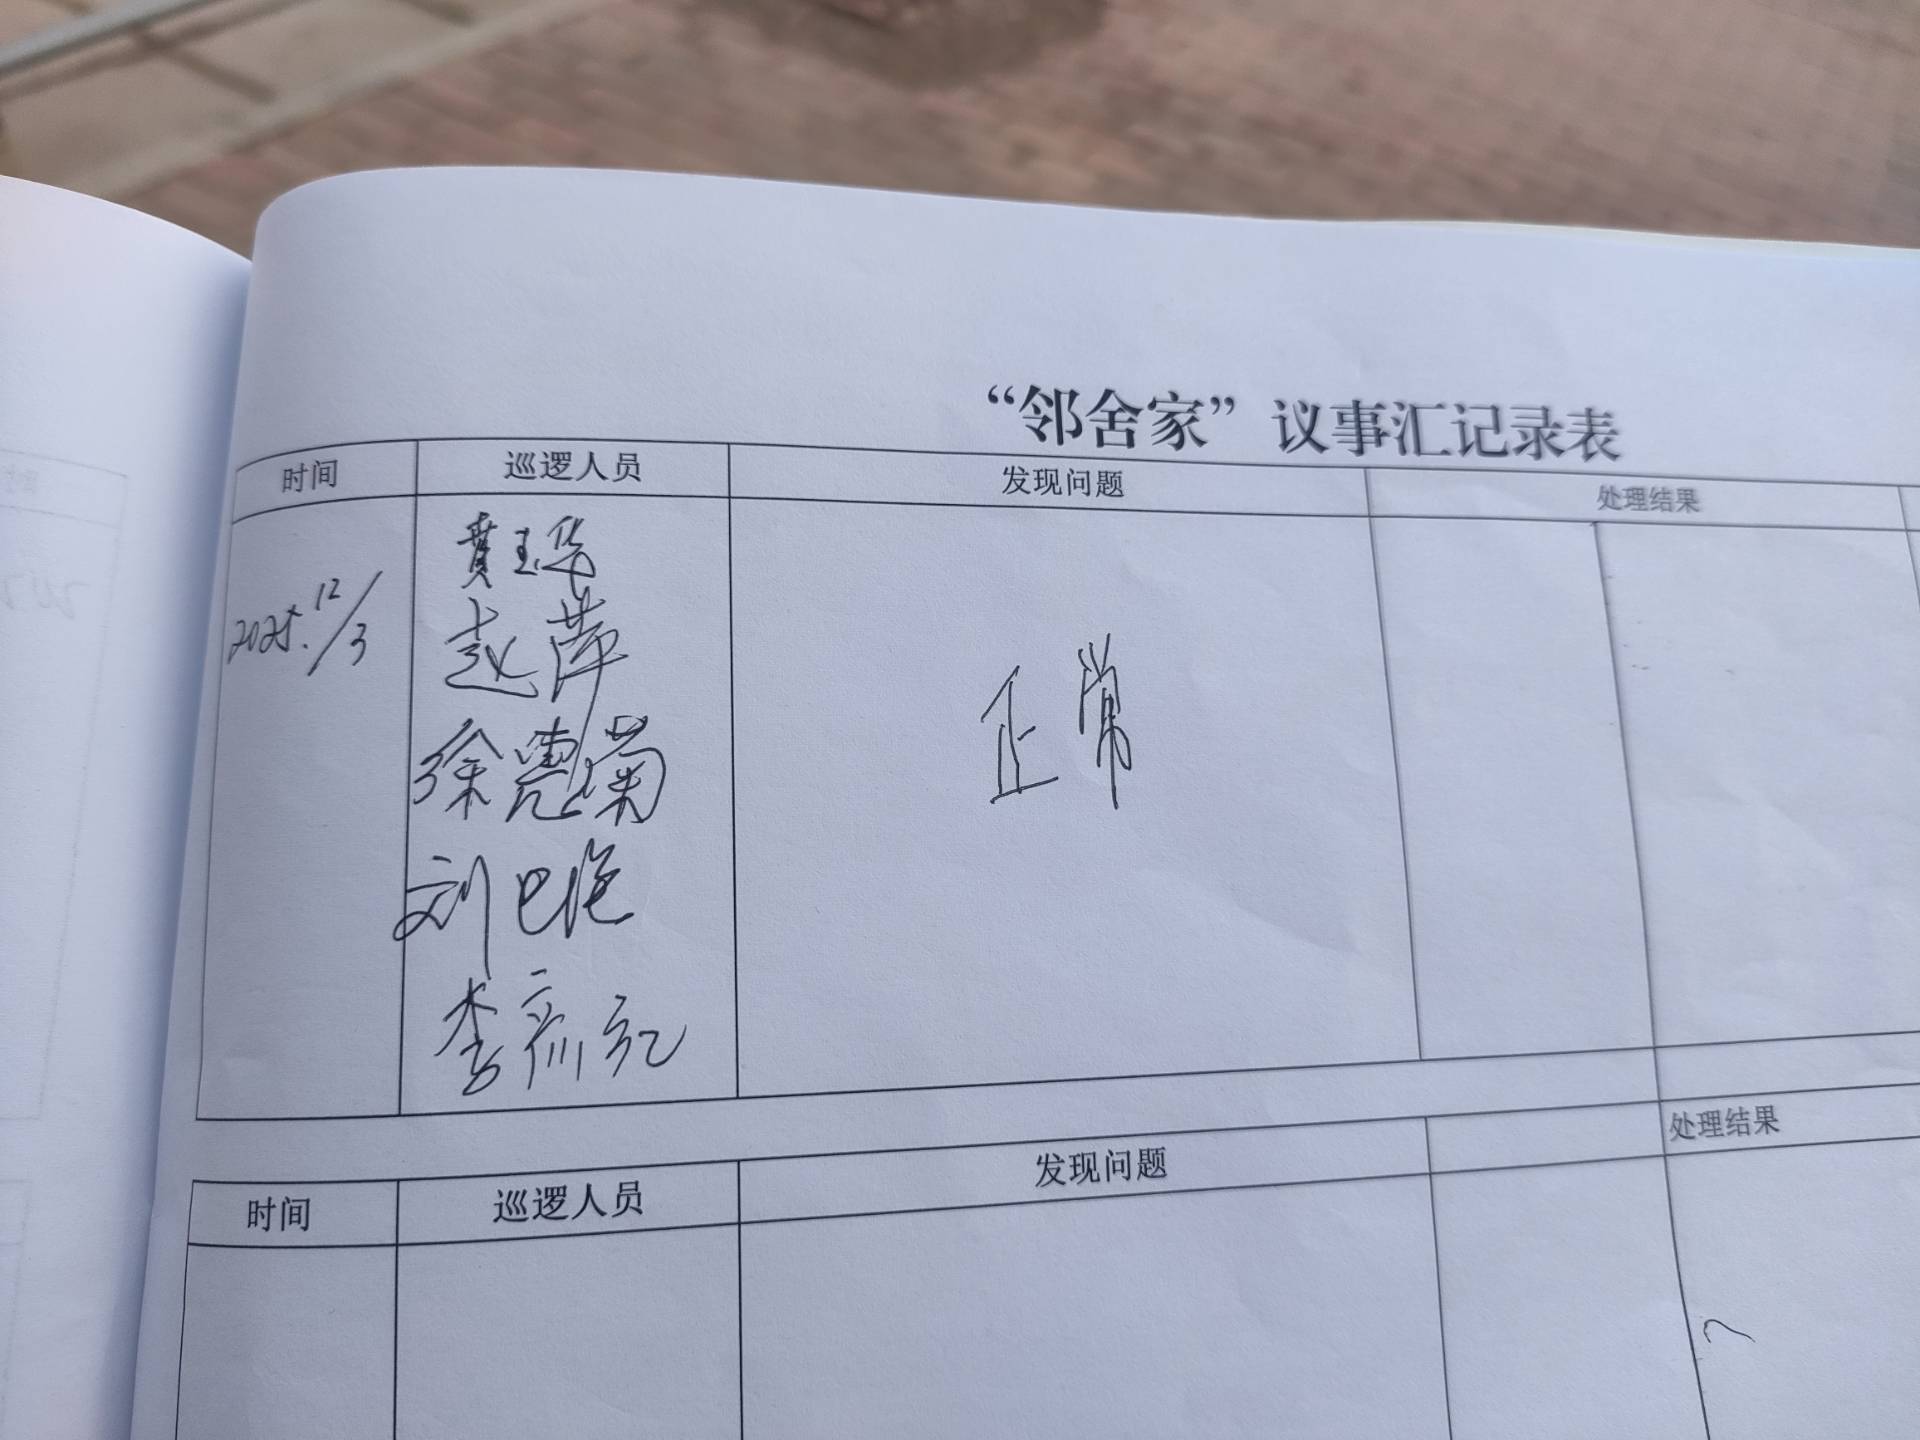 “邻舍家”议事汇记录表
时间 巡逻人员 发现问题 处理结果
2025.12/3 黄玉华 正常
赵萍
徐惠菊
刘
李
时间 巡逻人员 发现问题 处理结果